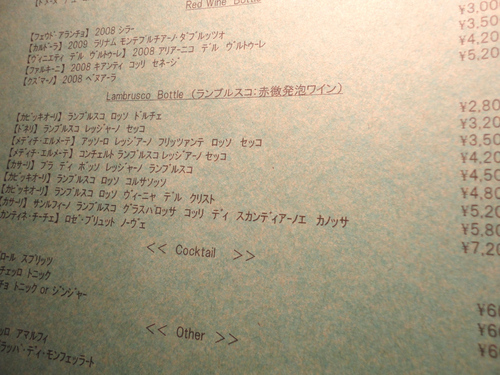 Red Wine Bottle
¥3,00
【フェウド・アランチョ】 2008 シラー ¥3,50
【カルドーラ】 2009 ラリナム モンテプルチアーノ・ダブルッツォ ¥4,20
【ヴィニエティ デル ヴルトゥーレ】 2008 アリアーニコ デル ヴルトゥーレ ¥5,20
【ファルキーニ】 2008 キアンティ コッリ セネージ
【クズマーノ】 2008 ベヌアーラ
Lambrusco Bottle (ランブルスコ:赤微発泡ワイン)
【カビッキオーリ】 ランブルスコ ロッソ ドルチェ ¥2,80
【ドネリ】 ランブルスコ レッジャーノ セッコ ¥3,20
【メディチ・エルメーテ】 アッソーロ レッジアーノ フリッツァンテ ロッソ セッコ ¥3,50
【メディチ・エルメーテ】 コンチェルト ランブルスコ レッジアーノ セッコ ¥4,20
【カサーリ】 プラ ディ ボッソ レッジャーノ ランブルスコ ¥4,50
【カビッキオーリ】 ランブルスコ ロッソ コルサロッソ ¥4,80
【カビッキオーリ】 ランブルスコ ロッソ ヴィーニャ デル クリスト ¥5,20
【カサーリ】 サンルフィーノ ランブルスコ グラスパロッサ コッリ ディ スカンディアーノエ カノッサ ¥5,80
カンティネ・チーチェ】 ロゼ・ブリュット ノーヴェ ¥7,20
<< Cocktail >>
ロール スプリッツ ¥60
チェッロ トニック ¥60
チョ トニック or ジンジャー ¥60
<< Other >>
ッロ アマルフィ
ラッパ・ディ・モンフェッラート